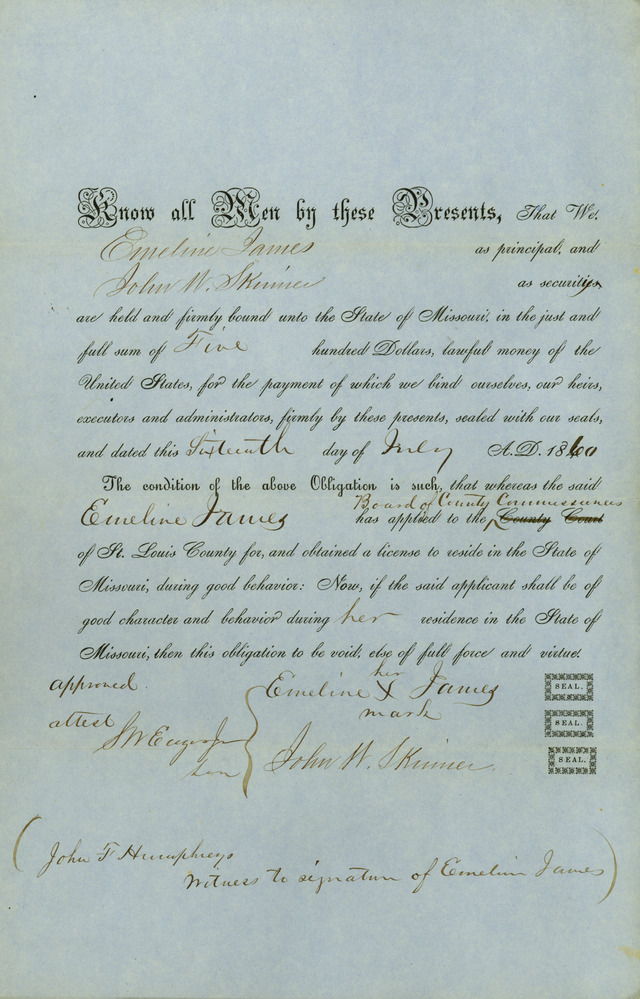 Know all Men by these Presents, That We,
Emeline James as principal, and
John W. Skinner as security
are held and firmly bound unto the State of Missouri, in the just and
full sum of Five hundred Dollars, lawful money of the
United States, for the payment of which we bind ourselves, our heirs,
executors and administrators, firmly by these presents, sealed with our seals,
and dated this Sixteenth day of July A.D. 1860
The condition of the above Obligation is such, that whereas the said
Board of County Commissioners
Emeline James has applied to the County Court
of St. Louis County for, and obtained a license to reside in the State of
Missouri, during good behavior: Now, if the said applicant shall be of
good character and behavior during her residence in the State of
Missouri, then this obligation to be void, else of full force and virtue.
approved
her
Emeline X James SEAL.
mark
attest
SEAL.
John W. Skinner SEAL.
(John F Humphreys
Witness to signature of Emeline James)